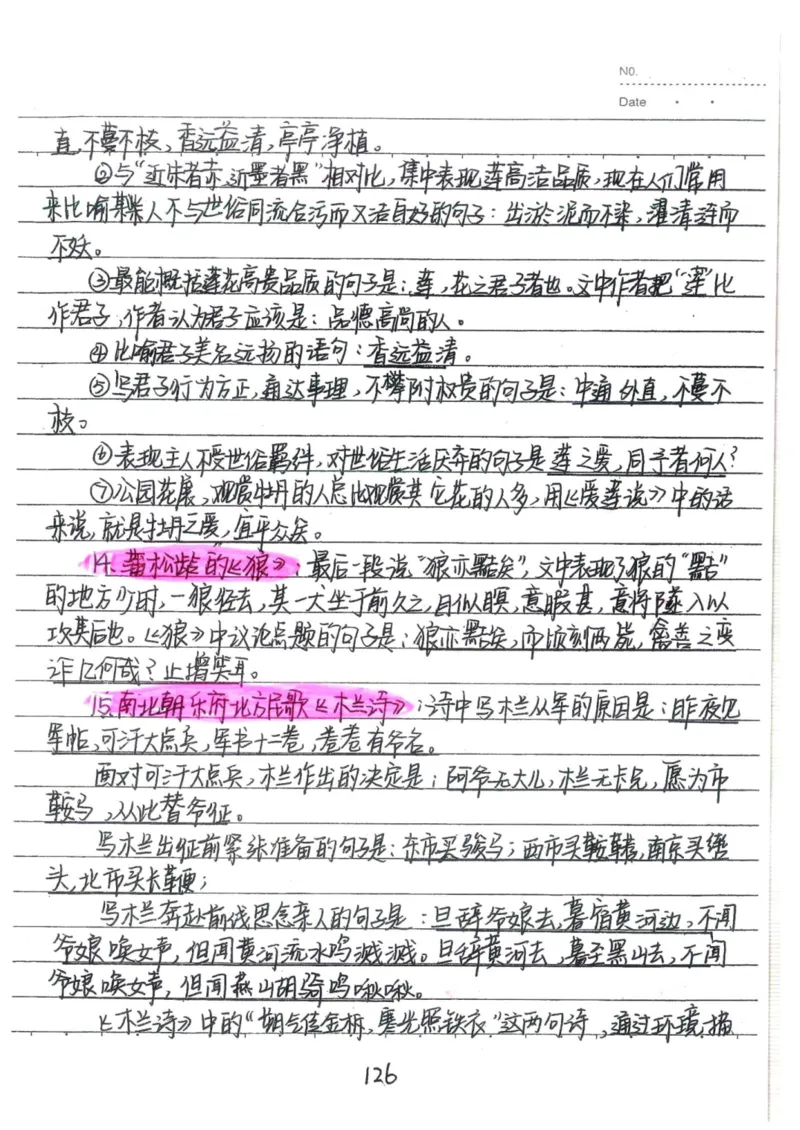 NO.
Date
直,不蔓不枝,香远益清,亭亭净植。
②与"近朱者赤,近墨者黑"相对比,集中表现莲高洁品质,现在人们常用
来比喻某些人不与世俗同流合污而又洁身自好的句子:出淤泥而不染,濯清涟而
不妖。
③最能概括莲花高贵品质的句子是:莲,花之君子者也。文中作者把"莲"比
作君子,作者认为君子应该是:品德高尚的人。
④比喻君子美名远扬的语句:香远益清。
⑤写君子行为方正,通达事理,不攀附权贵的句子是:中通外直,不蔓不
枝。
⑥表现主人不受世俗羁绊,对世俗生活厌弃的句子是莲之爱,同予者何人?
⑦公园花展,观赏牡丹的人总比观赏其它花的人多,用《爱莲说》中的话
来说,就是牡丹之爱,宜乎众矣。
14.蒲松龄的《狼》:最后一段说"狼亦黠矣",文中表现了狼的"黠"
的地方少时,一狼径去,其一犬坐于前久之,目似瞑,意暇甚,意将隧入以
攻其后也。《狼》中议论点题的句子是:狼亦黠矣,而顷刻两毙,禽兽之变
诈几何哉?止增笑耳。
15.南北朝乐府北方民歌《木兰诗》:诗中写木兰从军的原因是:昨夜见
军帖,可汗大点兵,军书十二卷,卷卷有爷名。
面对可汗大点兵,木兰作出的决定是:阿爷无大儿,木兰无长兄,愿为市
鞍马,从此替爷征。
写木兰出征前紧张准备的句子是:东市买骏马;西市买鞍鞯,南京买辔
头,北市买长鞭;
写木兰奔赴前线思念亲人的句子是:旦辞爷娘去,暮宿黄河边,不闻
爷娘唤女声,但闻黄河流水鸣溅溅。旦辞黄河去,暮至黑山去,不闻
爷娘唤女声,但闻燕山胡骑鸣啾啾。
《木兰诗》中的"朔气传金柝,寒光照铁衣"这两句诗,通过环境描
126